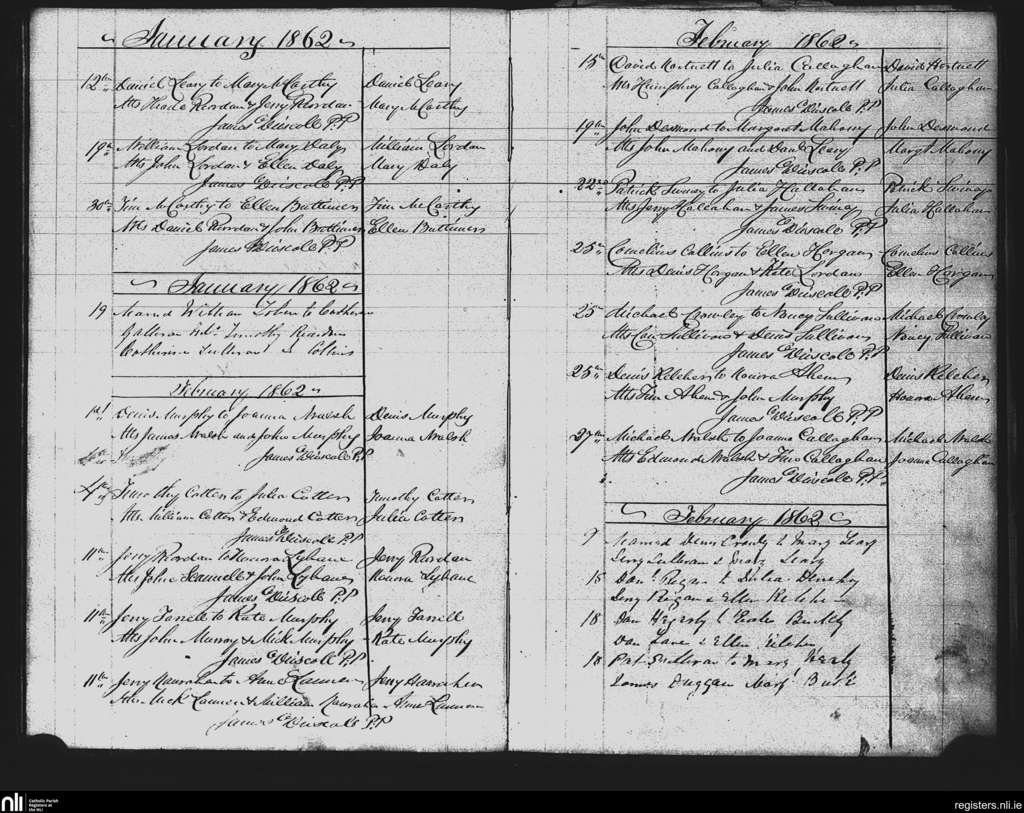 January 1862
12th Daniel Leary to Mary McCarthy Daniel Leary
Atts Honora Riordan & Jerry Riordan Mary McCarthy
James O'Driscoll P.P
19th William Lordan to Mary Daly William Lordan
Atts John Lordan & Ellen Daly Mary Daly
James O'Driscoll P.P
30th Tim McCarthy to Ellen Buttimer Tim McCarthy
Atts Daniel Riordan & John Buttimer Ellen Buttimer
James O'Driscoll P.P
January 1862
19 Married William Tobin to Catherine
Timothy Riordan
Catherine Collins
February 1862
1st Denis Murphy to Joanna Walsh Denis Murphy
Atts James Walsh and John Murphy Joanna Walsh
James O'Driscoll P.P
4th Timothy Cotter to Julia Cotter Timothy Cotter
Atts William Cotter & Edmond Cotter Julia Cotter
James O'Driscoll P.P
11th Jerry Riordan to Honora Lyhane Jerry Riordan
Atts John Scannell & John Lyhane Honora Lyhane
James O'Driscoll P.P
11th Jerry Farrell to Kate Murphy Jerry Farrell
Atts John Murray & Mick Murphy Kate Murphy
James O'Driscoll P.P
11th Jerry Hanrahan to Anne Lannen Jerry Hanrahan
Atts Mick Lannen & William Hanrahan Anne Lannen
James O'Driscoll P.P
February 1862
15th David Hartnett to Julia Callaghan David Hartnett
Atts Humphrey Callaghan & John Hartnett Julia Callaghan
James O'Driscoll P.P
19th John Desmond to Margaret Mahony John Desmond
Atts John Mahony and Danl Leary Margt Mahony
James O'Driscoll P.P
22nd Patrick Swiney to Julia Hallahan Patrick Swiney
Atts Jerry Hallahan & James Swiney Julia Hallahan
James O'Driscoll P.P
25th Cornelius Collins to Ellen Horgan Cornelius Collins
Atts Denis Horgan & Kate Lordan Ellen Horgan
James O'Driscoll P.P
25 Michael Crowley to Nancy Sullivan Michael Crowley
Atts Con Sullivan & Denis Sullivan Nancy Sullivan
James O'Driscoll P.P
25th Denis Kelleher to Honora Ahern Denis Kelleher
Atts Tim Ahern & John Murphy Honora Ahern
James O'Driscoll P.P
27th Michael Walsh to Joanna Callaghan Michael Walsh
Atts Edmond Walsh & Thos Callaghan Joanna Callaghan
James O'Driscoll P.P
February 1862
9 Married Denis to Mary Leary
Jerry Sullivan & Leary
15 Danl Regan to Julia
Jerry Regan & Ellen Kelleher
18 Dan Hegarty to Buckley
Dan Lane & Ellen
18 Pat Sullivan to Mary
James Duggan Mary Burke
nli Catholic Parish
Registers at
the NLI
registers.nli.ie